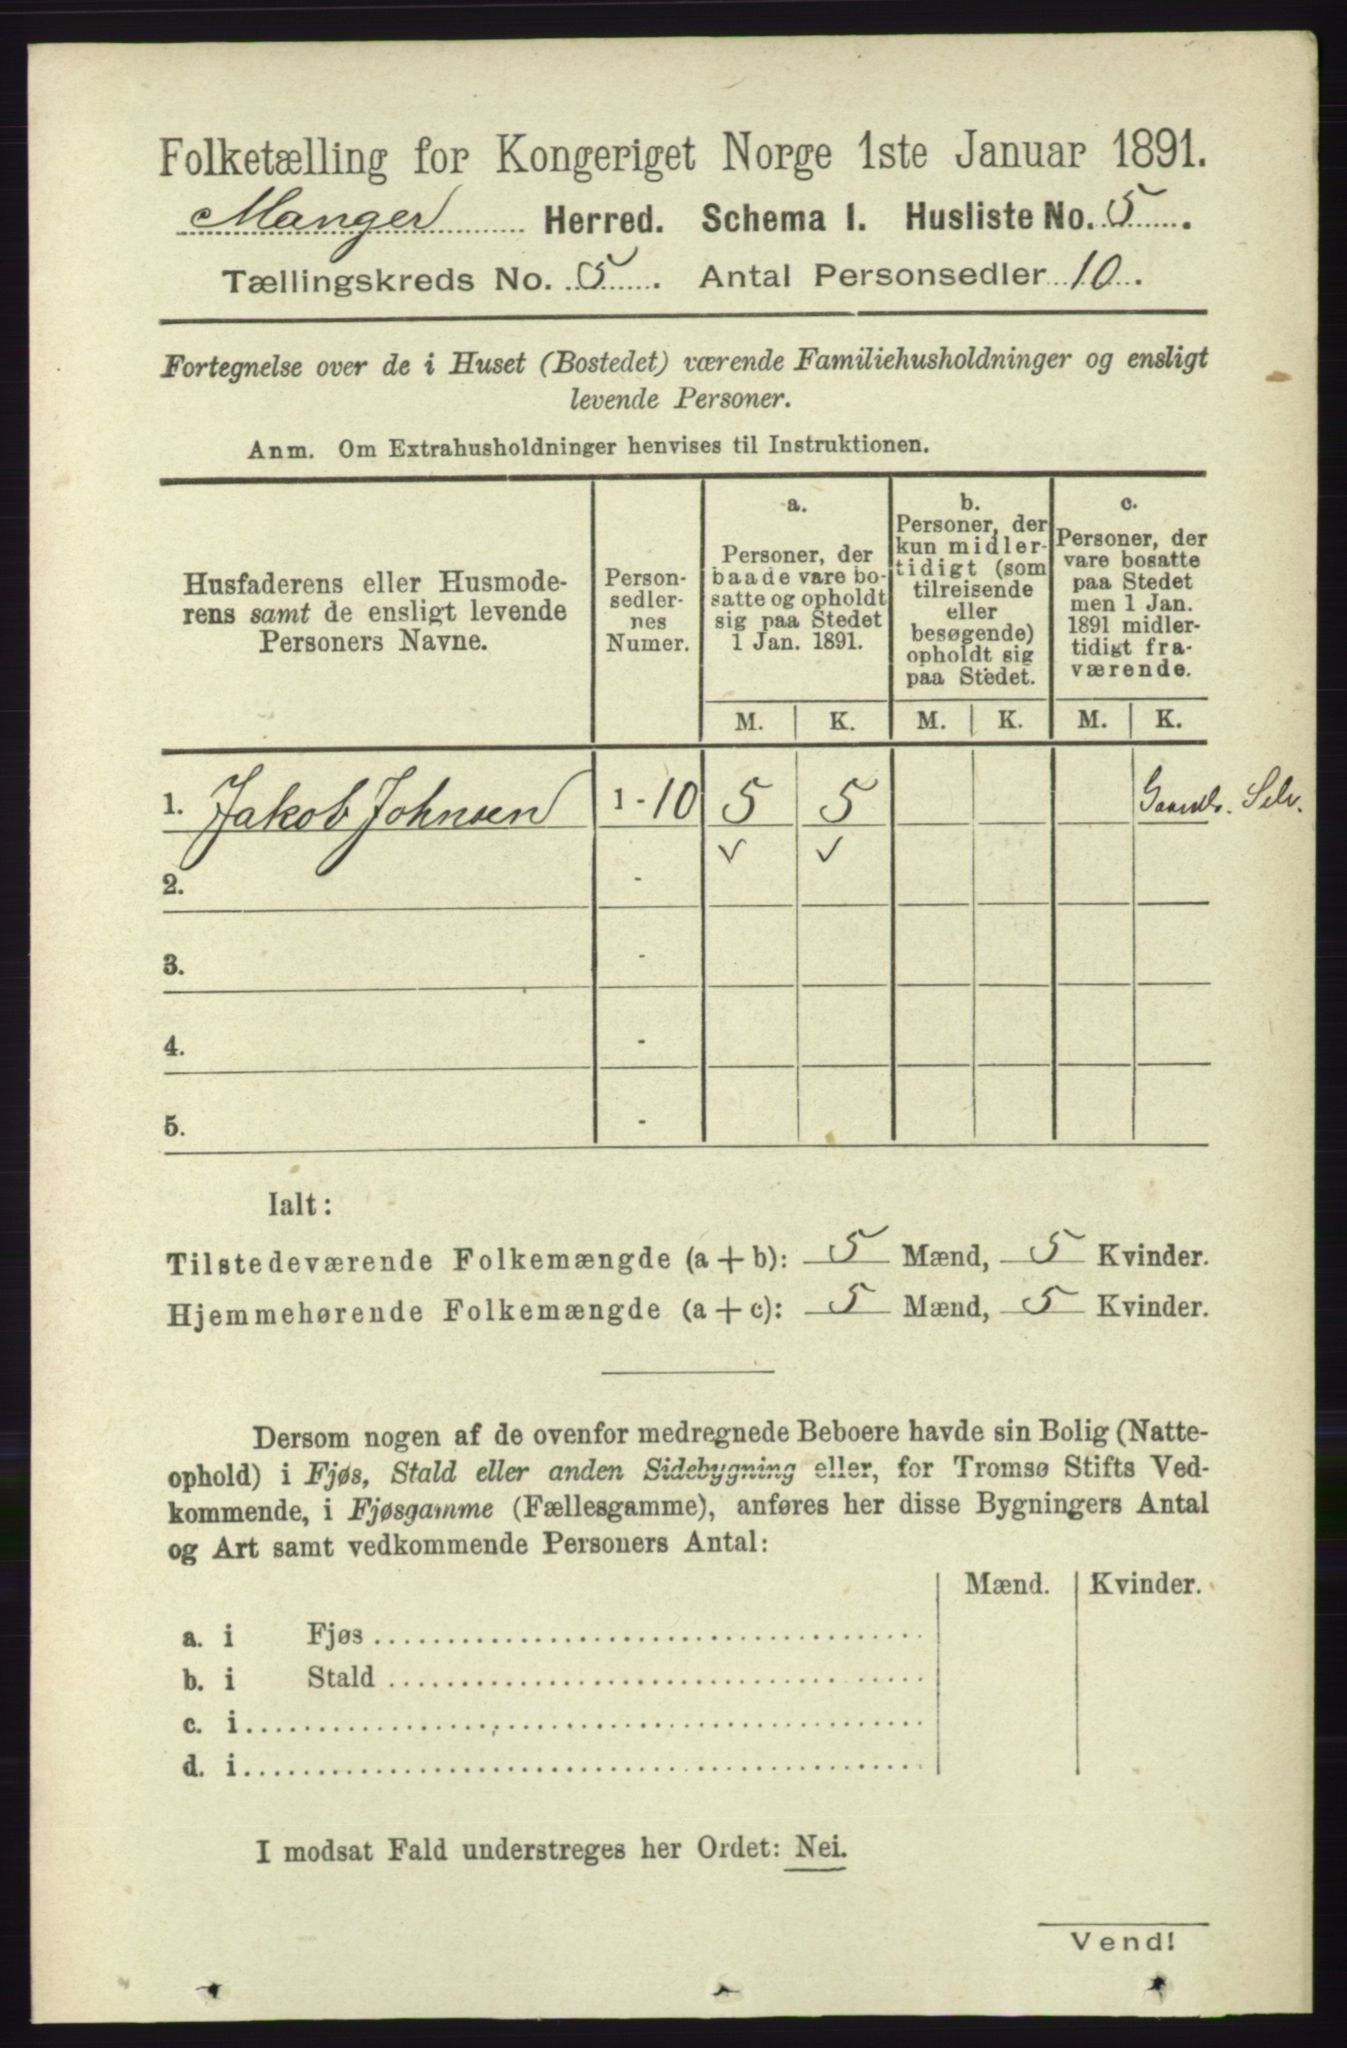 Folketælling for Kongeriget Norge 1ste Januar 1891.
Manger Herred. Schema I. Husliste No. 5.
Tællingskreds No. 5. Antal Personsedler 10.
Fortegnelse over de i Huset (Bostedet) værende Familiehusholdninger og ensligt
levende Personer.
Anm. Om Extrahusholdninger henvises til Instruktionen.
Husfaderens eller Husmode-
rens samt de ensligt levende
Personers Navne.
Person-
sedler-
nes
Numer.
a.
Personer, der
baade vare bo-
satte og opholdt
sig paa Stedet
1 Jan. 1891.
b.
Personer, der
kun midler-
tidigt (som
tilreisende
eller
besøgende)
opholdt sig
paa Stedet.
c.
Personer, der
vare bosatte
paa Stedet
men 1 Jan.
1891 midler-
tidigt fra-
værende.
M. K. M. K. M. K.
1. Jakob Johnsen 1 - 10 5 5 Gaardbr. Selv.
✓ ✓
2. -
3. -
4. -
5. -
Ialt:
Tilstedeværende Folkemængde (a + b): 5 Mænd, 5 Kvinder.
Hjemmehørende Folkemængde (a + c): 5 Mænd, 5 Kvinder.
Dersom nogen af de ovenfor medregnede Beboere havde sin Bolig (Natte-
ophold) i Fjøs, Stald eller anden Sidebygning eller, for Tromsø Stifts Ved-
kommende, i Fjøsgamme (Fællesgamme), anføres her disse Bygningers Antal
og Art samt vedkommende Personers Antal:
Mænd. Kvinder.
a. i Fjøs
b. i Stald
c. i
d. i
I modsat Fald understreges her Ordet: Nei.
Vend!